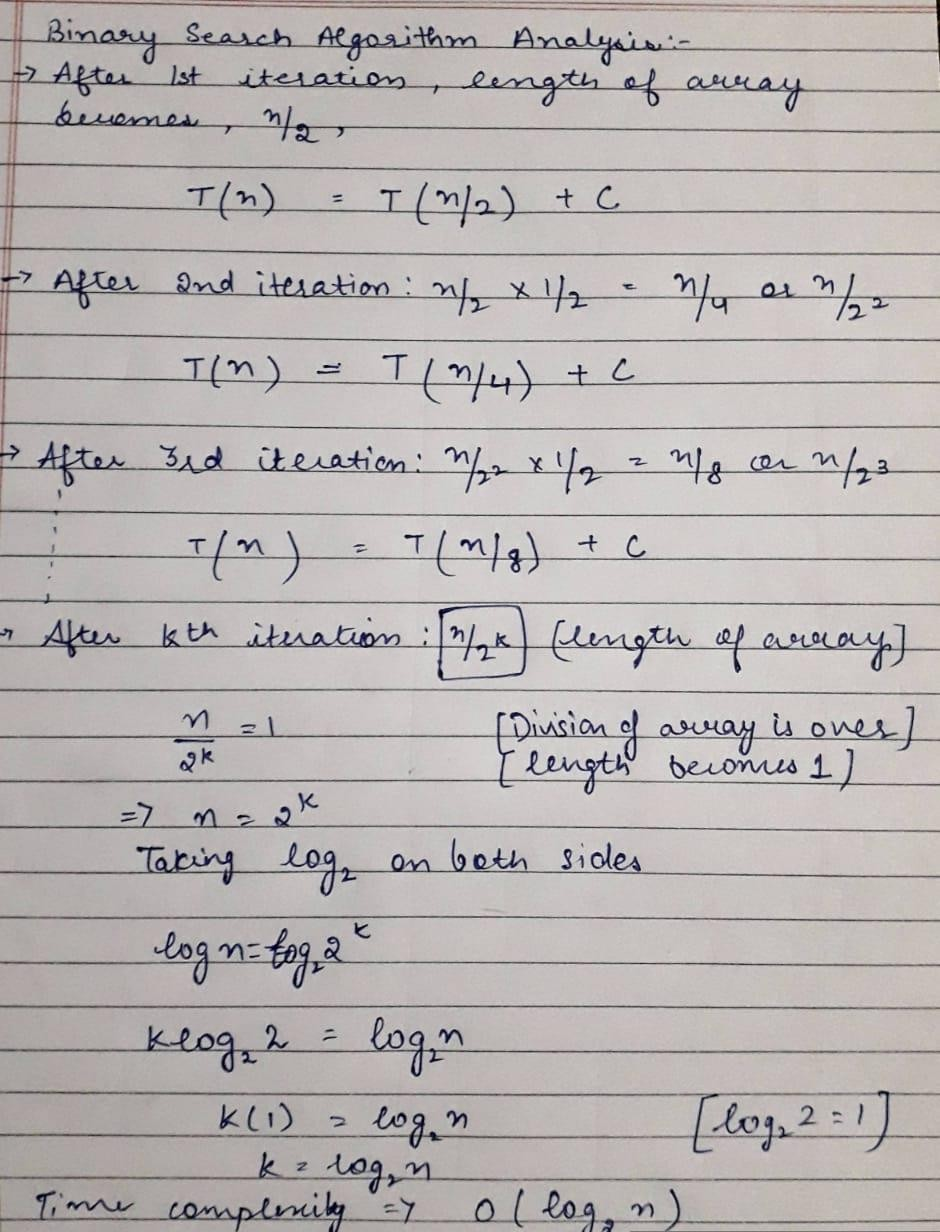 Binary Search Algorithm Analysis:-
→ After 1st iteration, length of array
becomes, n/2,
T(n) = T(n/2) + C
→ After 2nd iteration: n/2 x 1/2 = n/4 or n/2²
T(n) = T(n/4) + C
→ After 3rd iteration: n/2² x 1/2 = n/8 or n/2³
T(n) = T(n/8) + C
→ After kth iteration: n/2ᵏ [length of array]
n/2ᵏ = 1 [Division of array is over]
[length becomes 1]
=> n = 2ᵏ
Taking log₂ on both sides
log n = log₂2ᵏ
k log₂ 2 = log₂n
k(1) = log₂n [log₂ 2 = 1]
k = log₂n
Time complexity => O(log₂ n)